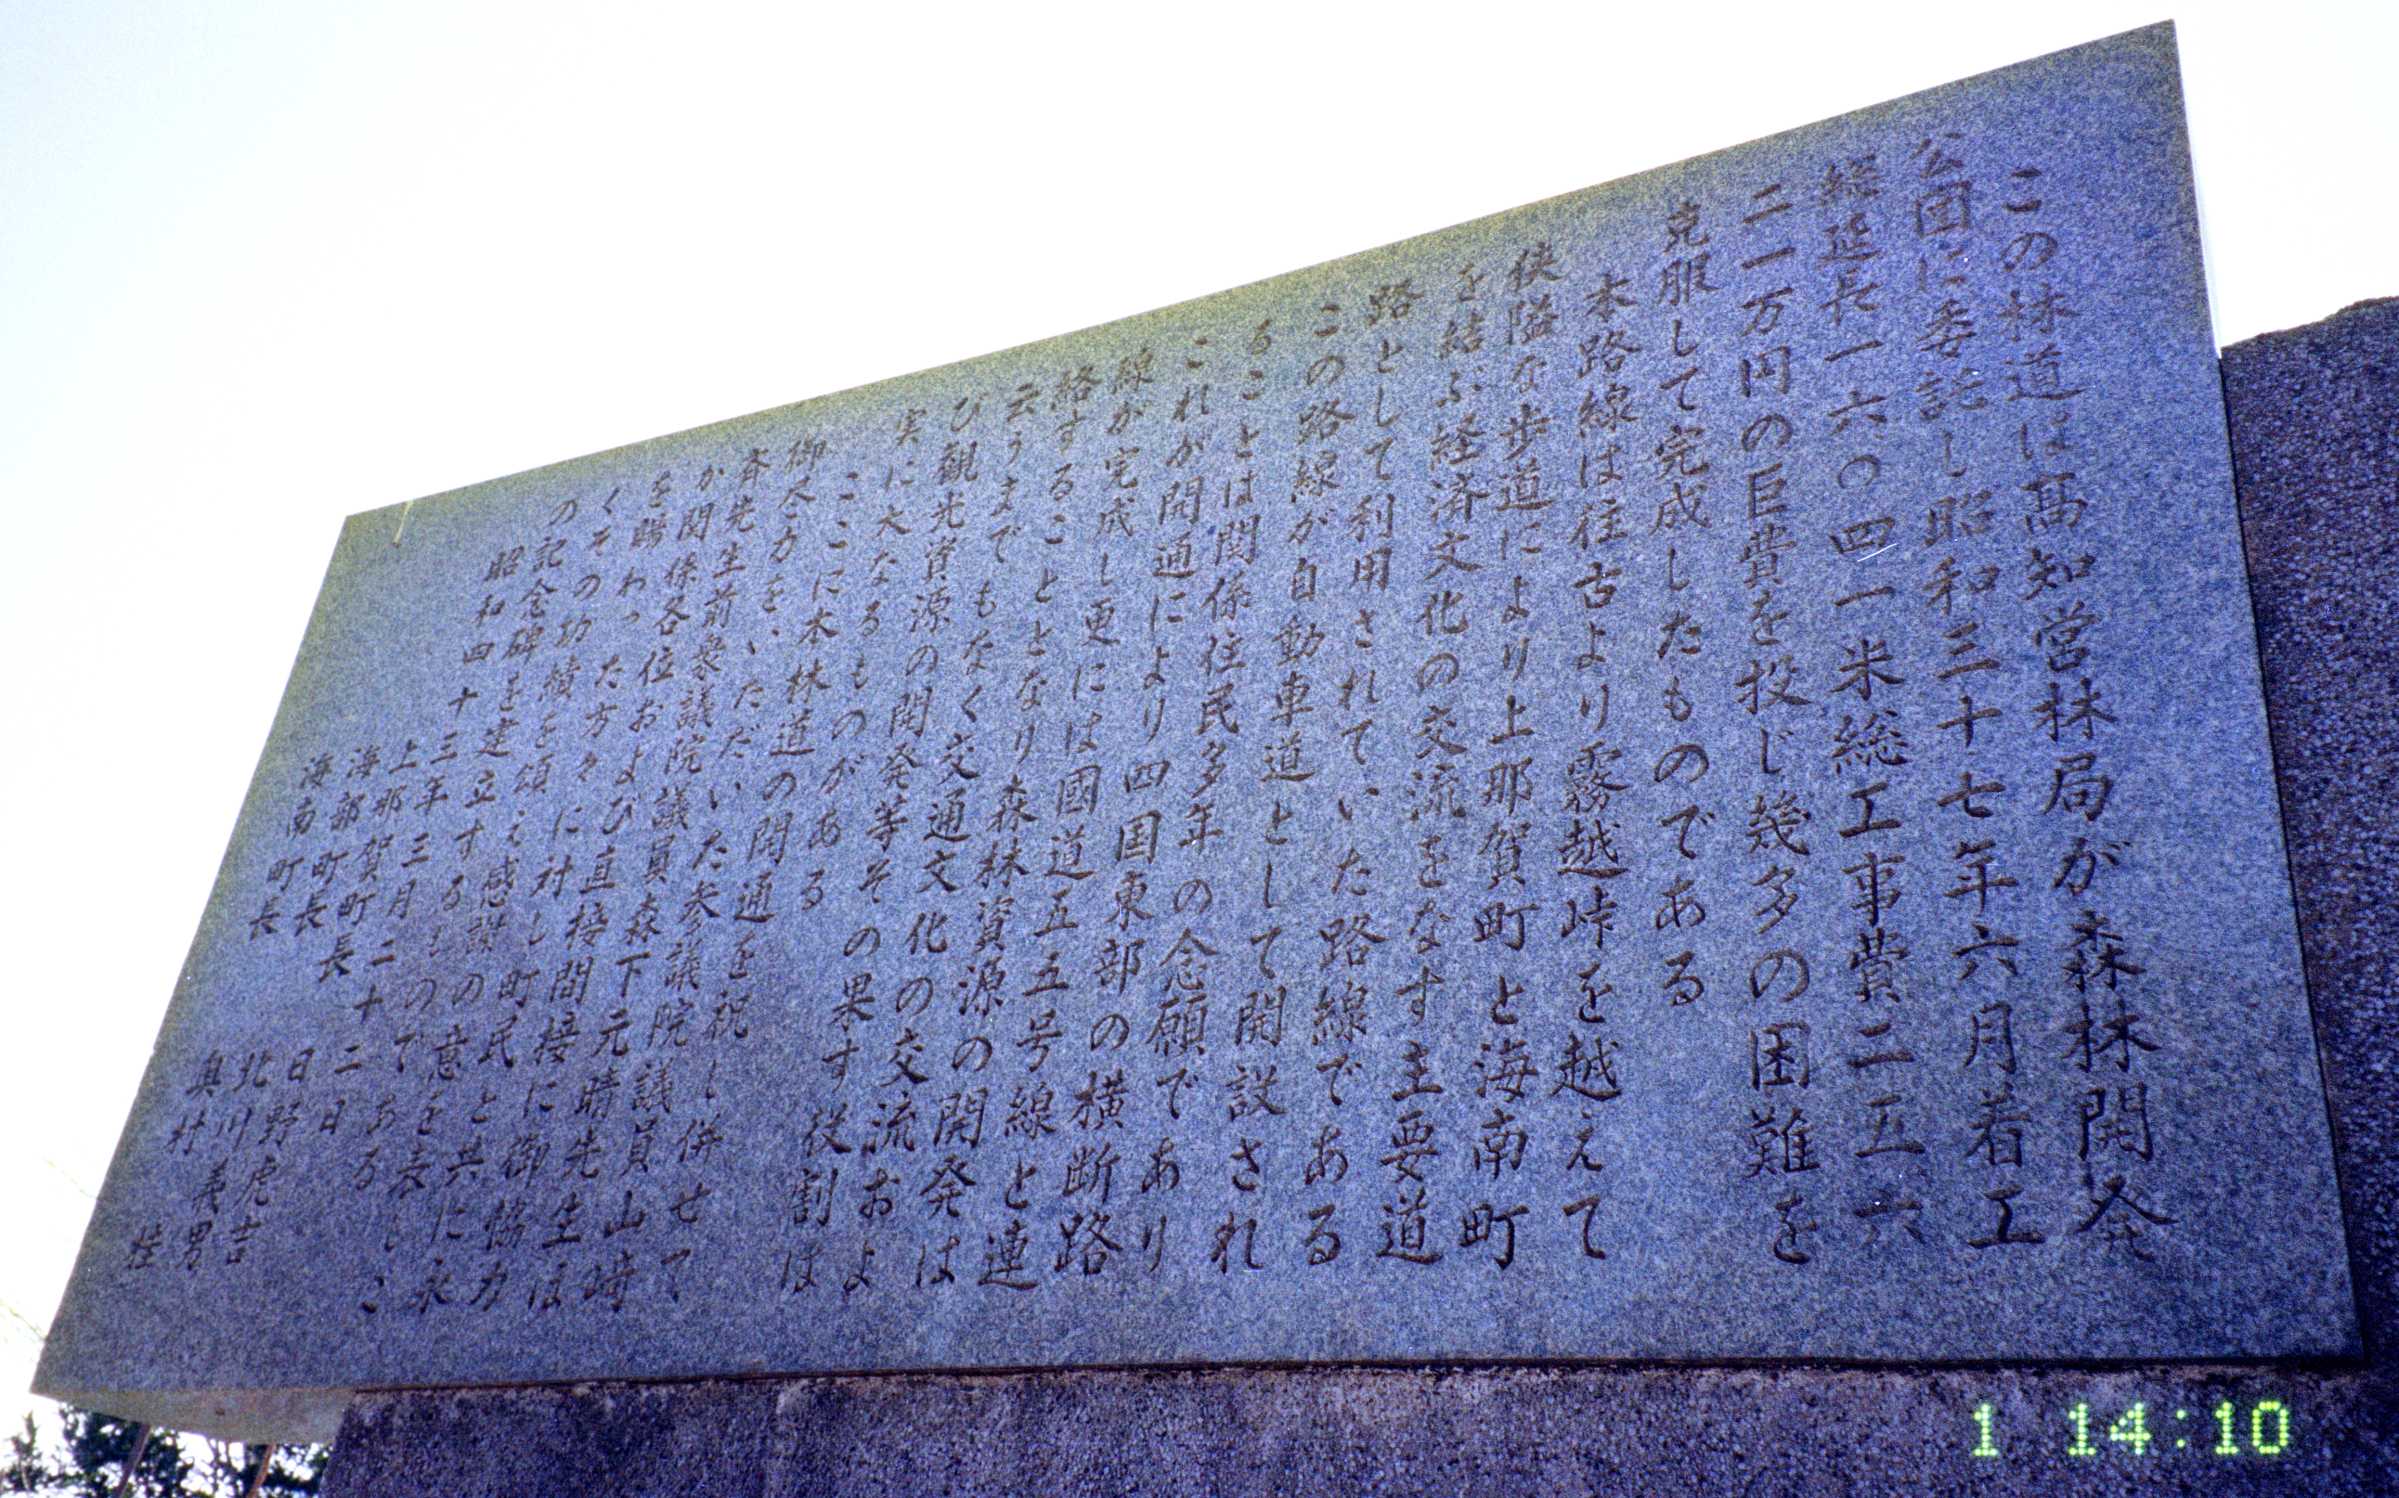 この林道は高知営林局が森林開発
公団に委託し昭和三十七年六月着工
総延長一六〇四一米総工事費二五六
二一万円の巨費を投じ幾多の困難を
克服して完成したものである
本路線は往古より霧越峠を越えて
狭隘な歩道により上那賀町と海南町
を結ぶ経済文化の交流をなす主要道
路として利用されていた路線である
この路線が自動車道として開設され
ることは関係住民多年の念願であり
これが開通により四国東部の横断路
線が完成し更には國道五五号線と連
絡することとなり森林資源の開発は
云うまでもなく交通文化の交流およ
び観光資源の開発等その果す役割は
実に大なるものがある
ここに本林道の開通を祝し併せて
御尽力をいただいた参議院議員山崎
斉先生前衆議院議員森下元晴先生ほ
か関係各位および直接間接に御協力
を賜わった方々に対し町民と共に永
くその功績を頌え感謝の意を表しこ
の記念碑を建立するものである
昭和四十三年三月二十二日
上那賀町長 日野虎吉
海部町長 北川義男
海南町長 奥村 桂
1 14:10